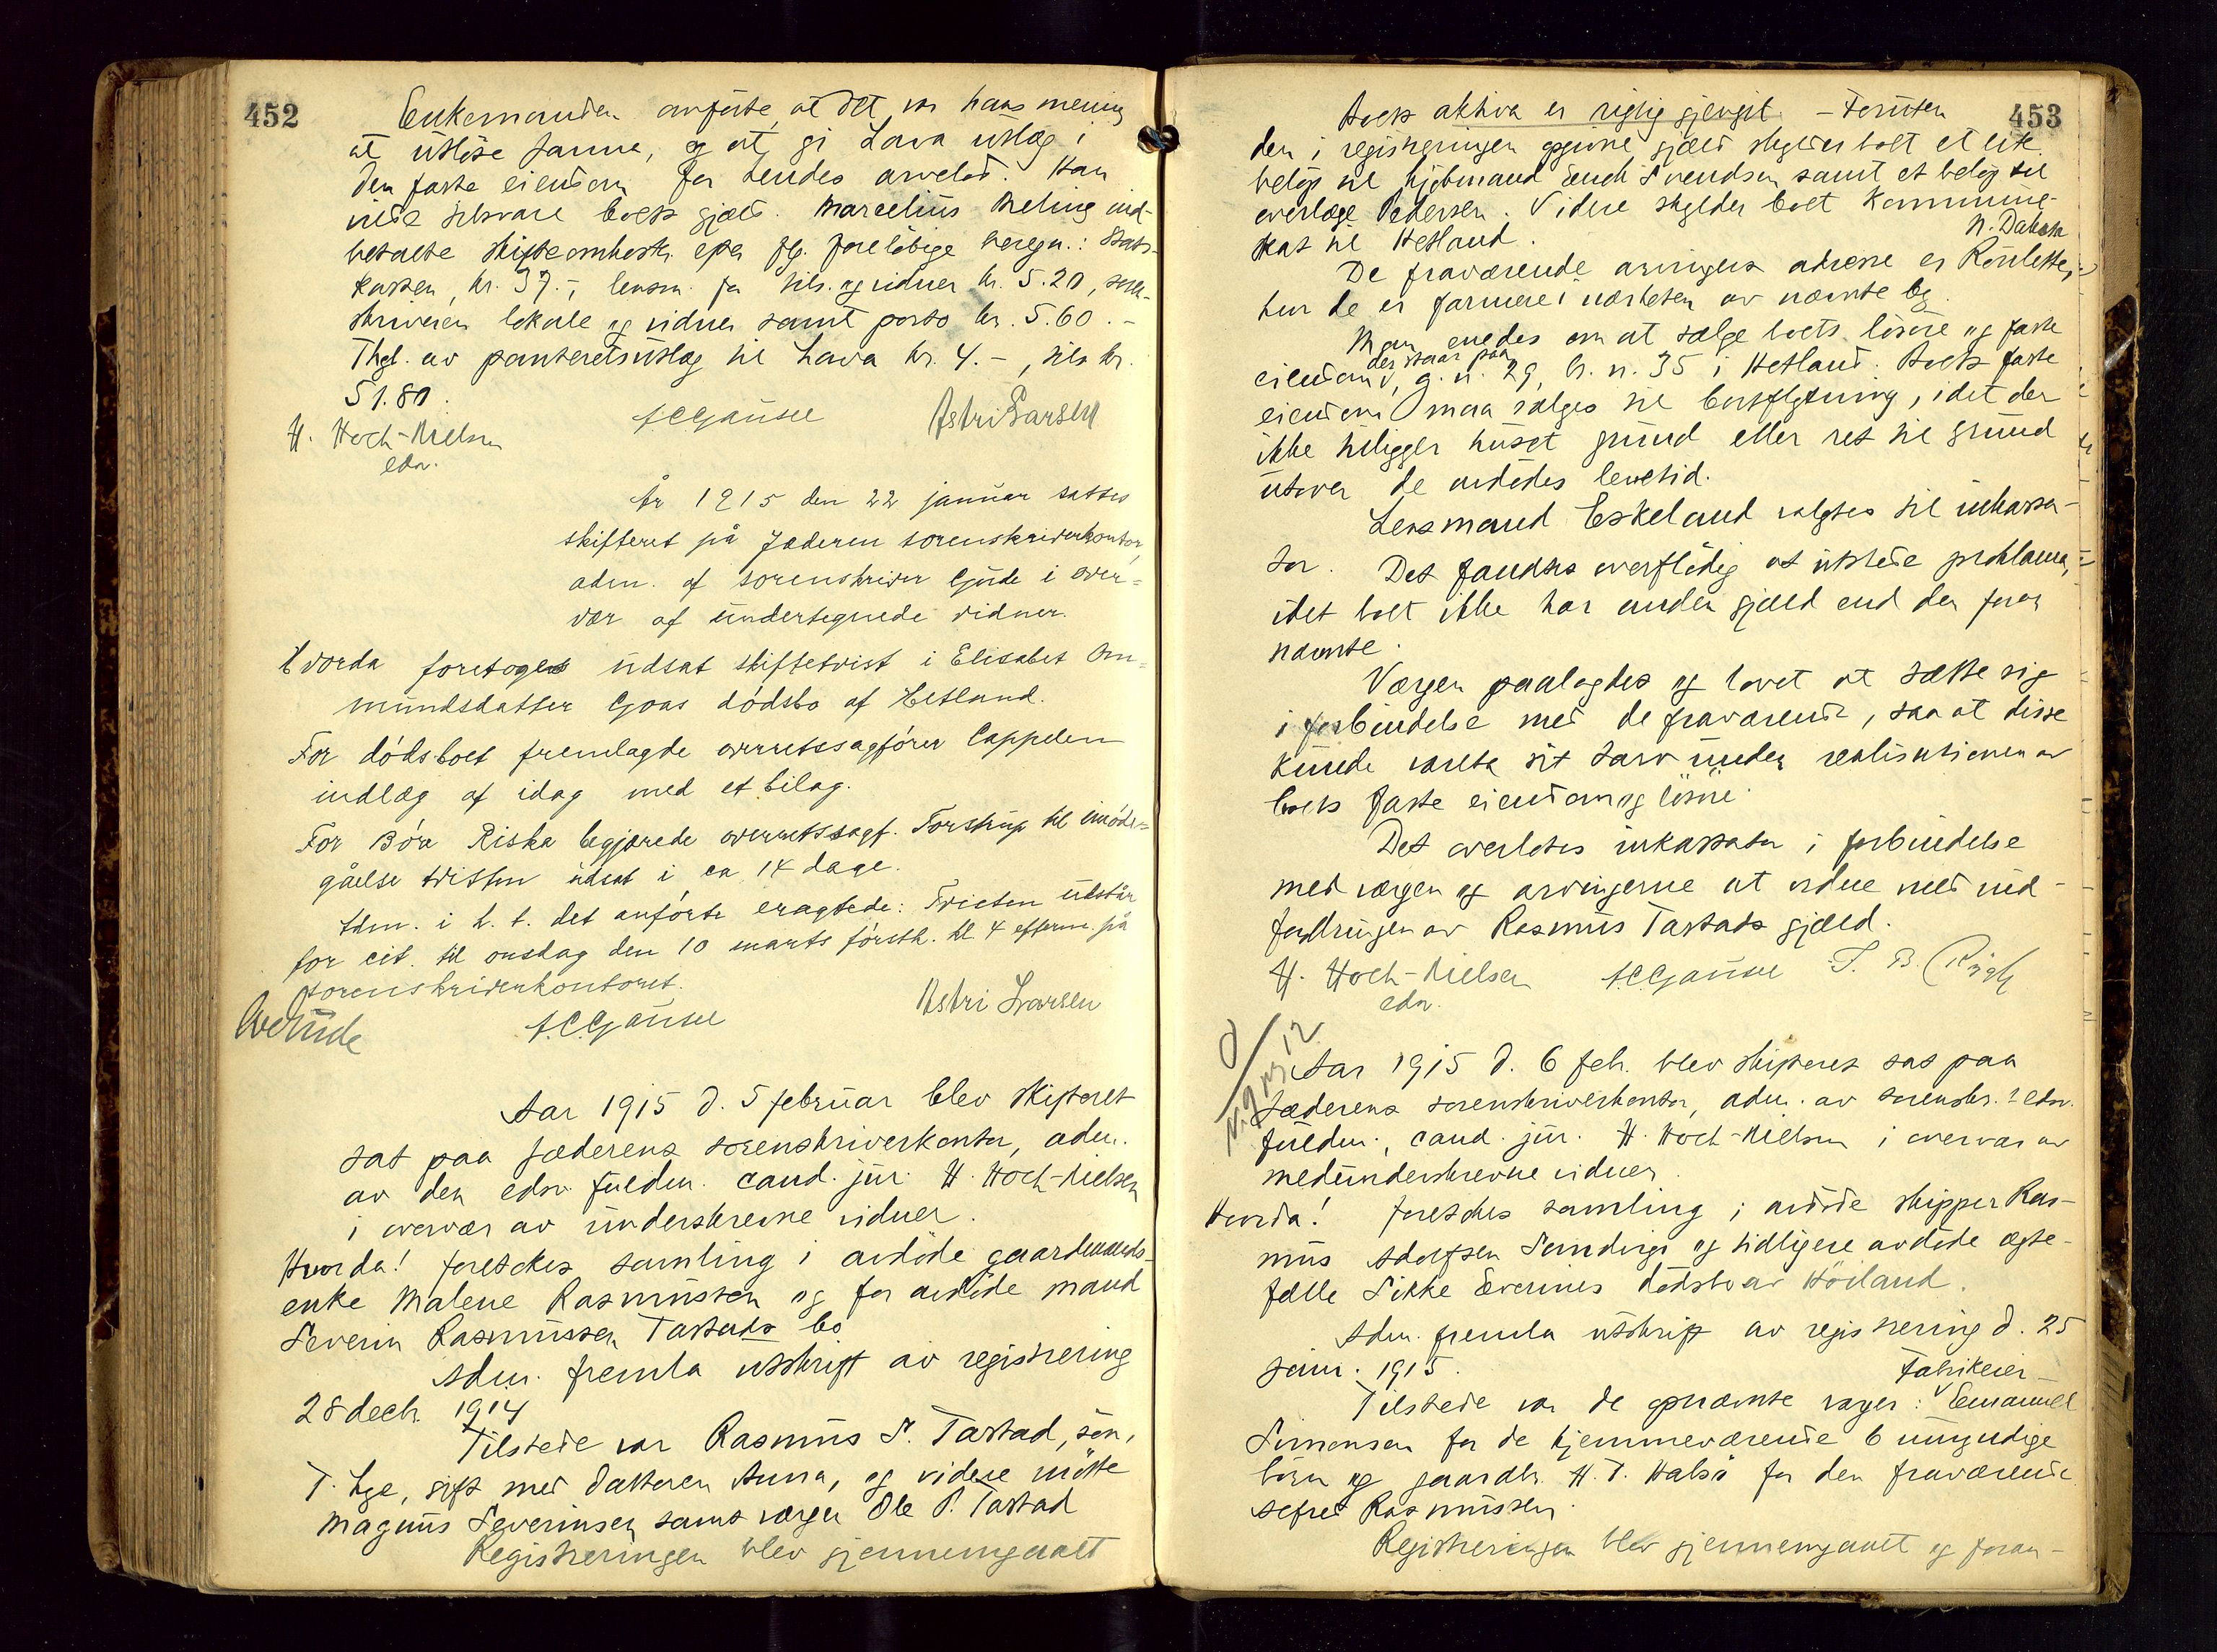 452
Enkemanden anførte, at det var hans mening
at utløse Janne, og at gi Lava utlæg i
den faste eiendom for hendes arvelod. Han
vilde tilsvare boets gjæld. Marcelius Meling ind-
betalte skifteomkostn. efter flg. foreløbige beregn.: Stats-
kassen, kr. 37.-, lensm. for tils. og vidner kr. 5.20, soren-
skriveren lokale og vidner samt porto kr. 5.60.-
Thgl. av panteretsutlæg til Lava kr. 4.-, tils kr.
51.80.
H. Hoch-Nielsen A C Gausel Astri Larsen
edsv.
År 1915 den 22 januar sattes
skifteret på Jæderen sorenskriverkontor,
adm. af sorenskriver Gjüde i over=
vær af undertegnede vidner.
Hvorda foretoges udsat skiftetvist i Elisabet Om=
mundsdatter Gjoas dødsbo af Hetland.
For dødsboet fremlagde overretssagfører Cappelen
indlæg af idag med et bilag.
For Børe Riska begjærede overretssagf. Torstrup til imøde=
gåelse tvisten udsat i ca 14 dage.
Adm. i h. t. det anførte eragtede: Tvisten udstår
for cit. til onsdag den 10 marts førstk. kl 4 efterm. på
sorenskriverkontoret.
A C Gausel Astri Larsen
Aar 1915 d. 5 februar blev skifteret
sat paa Jæderens sorenskriverkontor, adm.
av den edsv. fuldm. cand. jur. H. Hoch-Nielsen
i overvær av underskrevne vidner.
Hvorda! foretokes samling i avdøde gaardmands-
enke Malene Rasmussen og før avdøde mand
Severin Rasmussen Tastads bo.
Adm. fremla utskrift av registrering
28 decbr. 1914
Tilstede var Rasmus S. Tastad, søn,
T. Lye, gift med datteren Anna, og videre møtte
Magnus Severinsen samt værgen Ole P. Tastad
Registreringen blev gjennemgaaet
453
Boets aktiva er rigtig gjengit. - Foruten
den i registreringen opgivne gjæld skylder boet et lite
beløp til kjøbmand Svendsen samt et beløp til
overlæge Pedersen. Videre skylder boet kommune-
skat til Hetland.
N. Dakota
De fraværende arvingers adresse er Roulette,
hvor de er farmere i nærheten av nævnte by.
Man enedes om at sælge boets løsøre og faste
der staar paa
eiendom, g. n. 29, br. n. 35 i Hetland. Boets faste
eiendom maa sælges til bortflytning, idet der
ikke tilligger huset grund eller ret til grund
utover de avdødes levetid.
Lensmand Eskeland valgtes til inkassa-
tor. Det fandtes overflødig at utstede proklama,
idet boet ikke har anden gjæld end den foran
nævnte.
Værgen paalagdes og lovet at sætte sig
i forbindelse med de fraværende, saa at disse
kunde vareta sit tarv under realisationen av
boets faste eiendom og løsøre.
Det overlotes inkassator i forbindelse
med værgen og arvingerne at ordne med ind-
fordringen av Rasmus Tastads gjæld.
H. Hoch-Nielsen A C Gausel
edsv.
Aar 1915 d. 6 feb. blev skifteret sat paa
Jæderens sorenskriverkontor, adm. av sorenskr.s edsv.
fuldm., cand. jur. H. Hoch-Nielsen i overvær av
medunderskrevne vidner.
Hvorda! foretokes samling i avdøde skipper Ras-
mus Adolfsen og tidligere avdøde ægte-
fælle Sikke Severines dødsbo av Høiland.
Adm. fremla utskrift av registrering d. 25
janr. 1915.
Fabrikeier
Tilstede var de opnævnte værger: Emanuel
Simonsen for de hjemmeværende 6 umyndige
børn og gaardbr. H. T. Halsø for den fraværende
Sefred Rasmussen.
Registreringen blev gjennemgaaet og foran-